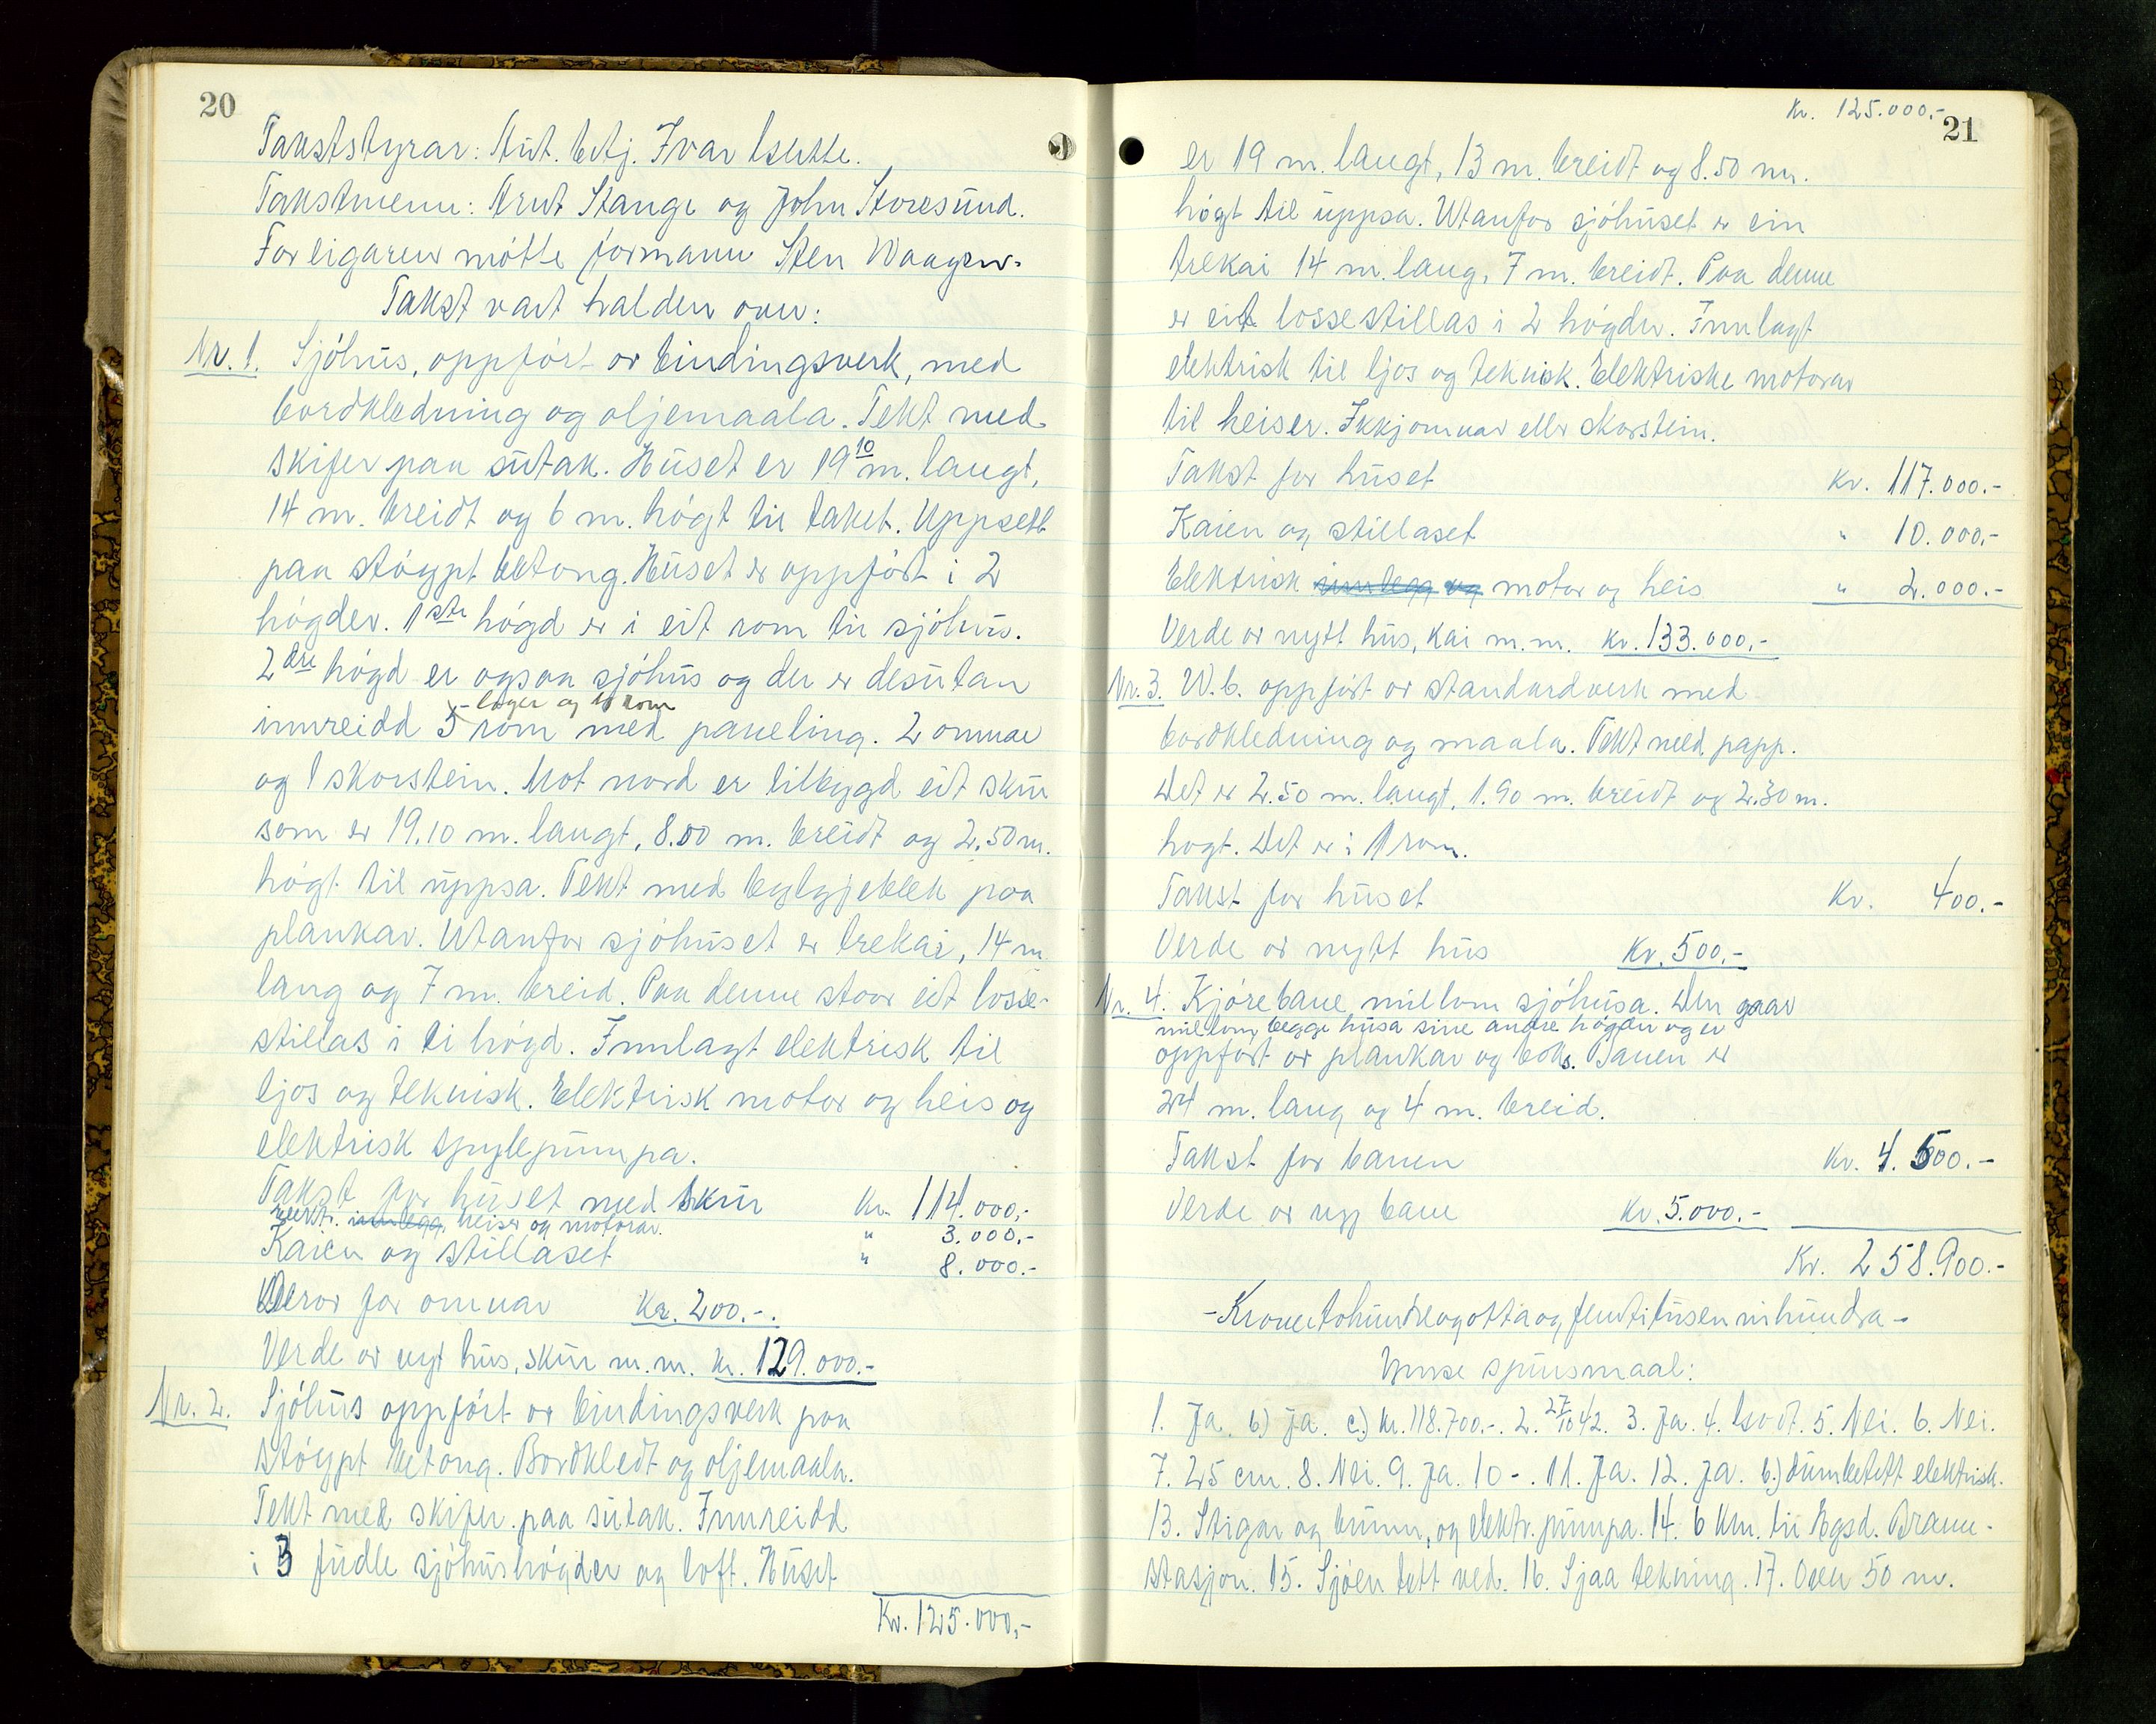 20
Takststyrar: Aut. betj. Ivar
Takstmenn: Knut Stange og John Storesund.
For eigaren møtte formann Sten Waagen.
Takst vart halden over:
Nr. 1. Sjóhús, oppfórt or bindingsverk, med
bordkledning og oljemaala. Tekt med
skifer paa sútak. Húset er 19 10 m. langt,
14 m. breidt og 6 m. högt til taket. Uppsett
paa stöypt betong. Húset er oppfört i 2
högder. 1ste högd er i eit rom til sjöhús.
2dre högd er ogsaa sjöhús og der er desútan
lager og 1 rom
innreidd 5 rom med paneling. 2 omnar
og 1 skorstein. Mot nord er tilbygd eit skúr
som er 19.10 m. langt, 8.00 m. breidt og 2.50 m.
högt til úppsa. Tekt med bylgjeblek paa
plankar. Utanfor sjöhúset er trekai, 14 m.
lang og 7 m. breid. Paa denne staar eit losse-
stillas i ei högd. Innlagt elektrisk til
ljos og teknisk. Elektrisk motor og heis og
elektrisk spylepúmpa.
Takst for húset med skúr Kr. 114.000,-
elektr. innlegg, heiser og motorar. " 3.000,-
Kaien og stillaset " 8.000.-
Derav for omnar Kr. 200.-.
Verde av nyt hús, skúr m.m. kr. 129.000.-
Nr. 2. Sjöhús oppfört or bindingsverk paa
stöypt betong. Bordkledt og oljemaala.
Tekt med skifer paa sútak. Innreidd
i 3 fúlle sjöhúshögder og loft. Húset
Kr. 125.000,-
Kr. 125.000,-
21
er 19 m. langt, 13 m. breidt og 8.50 m.
högt til úppsa. Utanfor sjöhúset er ein
trekai 14 m. lang, 7 m. breidt. Paa denne
er eit lossestillas i 2 högder. Innlagt
elektrisk til ljos og teknisk. Elektriske motorar
til heiser. Ikkje omnar eller skorstein.
Takst for húset Kr. 117.000.-
Kaien og stillaset " 10.000,-
Elektrisk innlegg og motor og heis " 2.000.-
Verde or nytt hús, kai m.m. kr. 133.000,-
Nr. 3. W.C. oppfört or standardverk med
bordkledning og maala. Tekt med papp.
Det er 2.50 m. langt, 1.90 m. breidt og 2.30 m.
hogt. Det er i 1 rom.
Takst for húset Kr. 400.-
Verde or nytt hús Kr. 500.-
Nr. 4. Kjörebane millom sjöhúsa. Den gaar
millom begge húsa sine andre högder og er
oppfört or plankar og bolts. Banen er
24 m. lang og 4 m. breid.
Takst for banen Kr. 4.500.-
Verde or ny bane Kr. 5.000.-
Kr. 258.900.-
- Kroner tohundreogottaogfemtitúsen nihundra -
Ymse spúrsmaal:
1. Ja. b) Ja. c.) Kr. 118.700.-. 2. 27/10 42. 3. Ja. 4. Godt. 5. Nei. 6. Nei.
7. 25 cm. 8. Nei. 9. Ja. 10 -. 11. Ja. 12. Ja. b.) Gúmbetett elektrisk.
13. Stigar og brunn, og elektr. púmpa. 14. 6 Km. til Hgsd. Brann-
stasjon. 15. Sjöen tett ved. 16. Sjaa tekning. 17. Over 50 m.